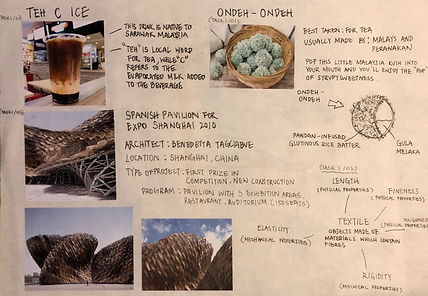 (TASK1/02)
TEH C ICE
THIS DRINK IS NATIVE TO
SARAWAK, MALAYSIA
"TEH" IS LOCAL WORD
FOR TEA, WHILE "C"
REFERS TO THE
EVAPORATED MILK ADDED
TO THE BEVERAGE
ONDEH - ONDEH
(TASK1/01)
BEST TAKEN: FOR TEA
USUALLY MADE BY: MALAYS AND
PERANAKAN
POP THIS LITTLE MALAYSIA KUIH INTO
YOUR MOUTH AND YOU'LL ENJOY THE "POP"
OF SYRUPY SWEETNESS
ONDEH -
ONDEH
PANDAN-INFUSED
GLUTINOUS RICE BATTER
GULA
MELAKA
(TASK1/03)
SPANISH PAVILION FOR
EXPO SHANGHAI 2010
ARCHITECT: BENEDETTA TAGLIABUE
LOCATION: SHANGHAI, CHINA
TYPE OF PROJECT: FIRST PRIZE IN
COMPETITION, NEW CONSTRUCTION
PROGRAM: PAVILION WITH 3 EXHIBITION AREAS,
RESTAURANT, AUDITORIUM (150 SEATS)
(TASK 1/02)
LENGTH
(PHYSICAL PROPERTIES)
FINENESS
(PHYSICAL PROPERTIES)
TEXTILE
OBJECTS MADE OF
MATERIALS WHICH CONTAIN
FIBRES
ELASTICITY
(MECHANICAL PROPERTIES)
RIGIDITY